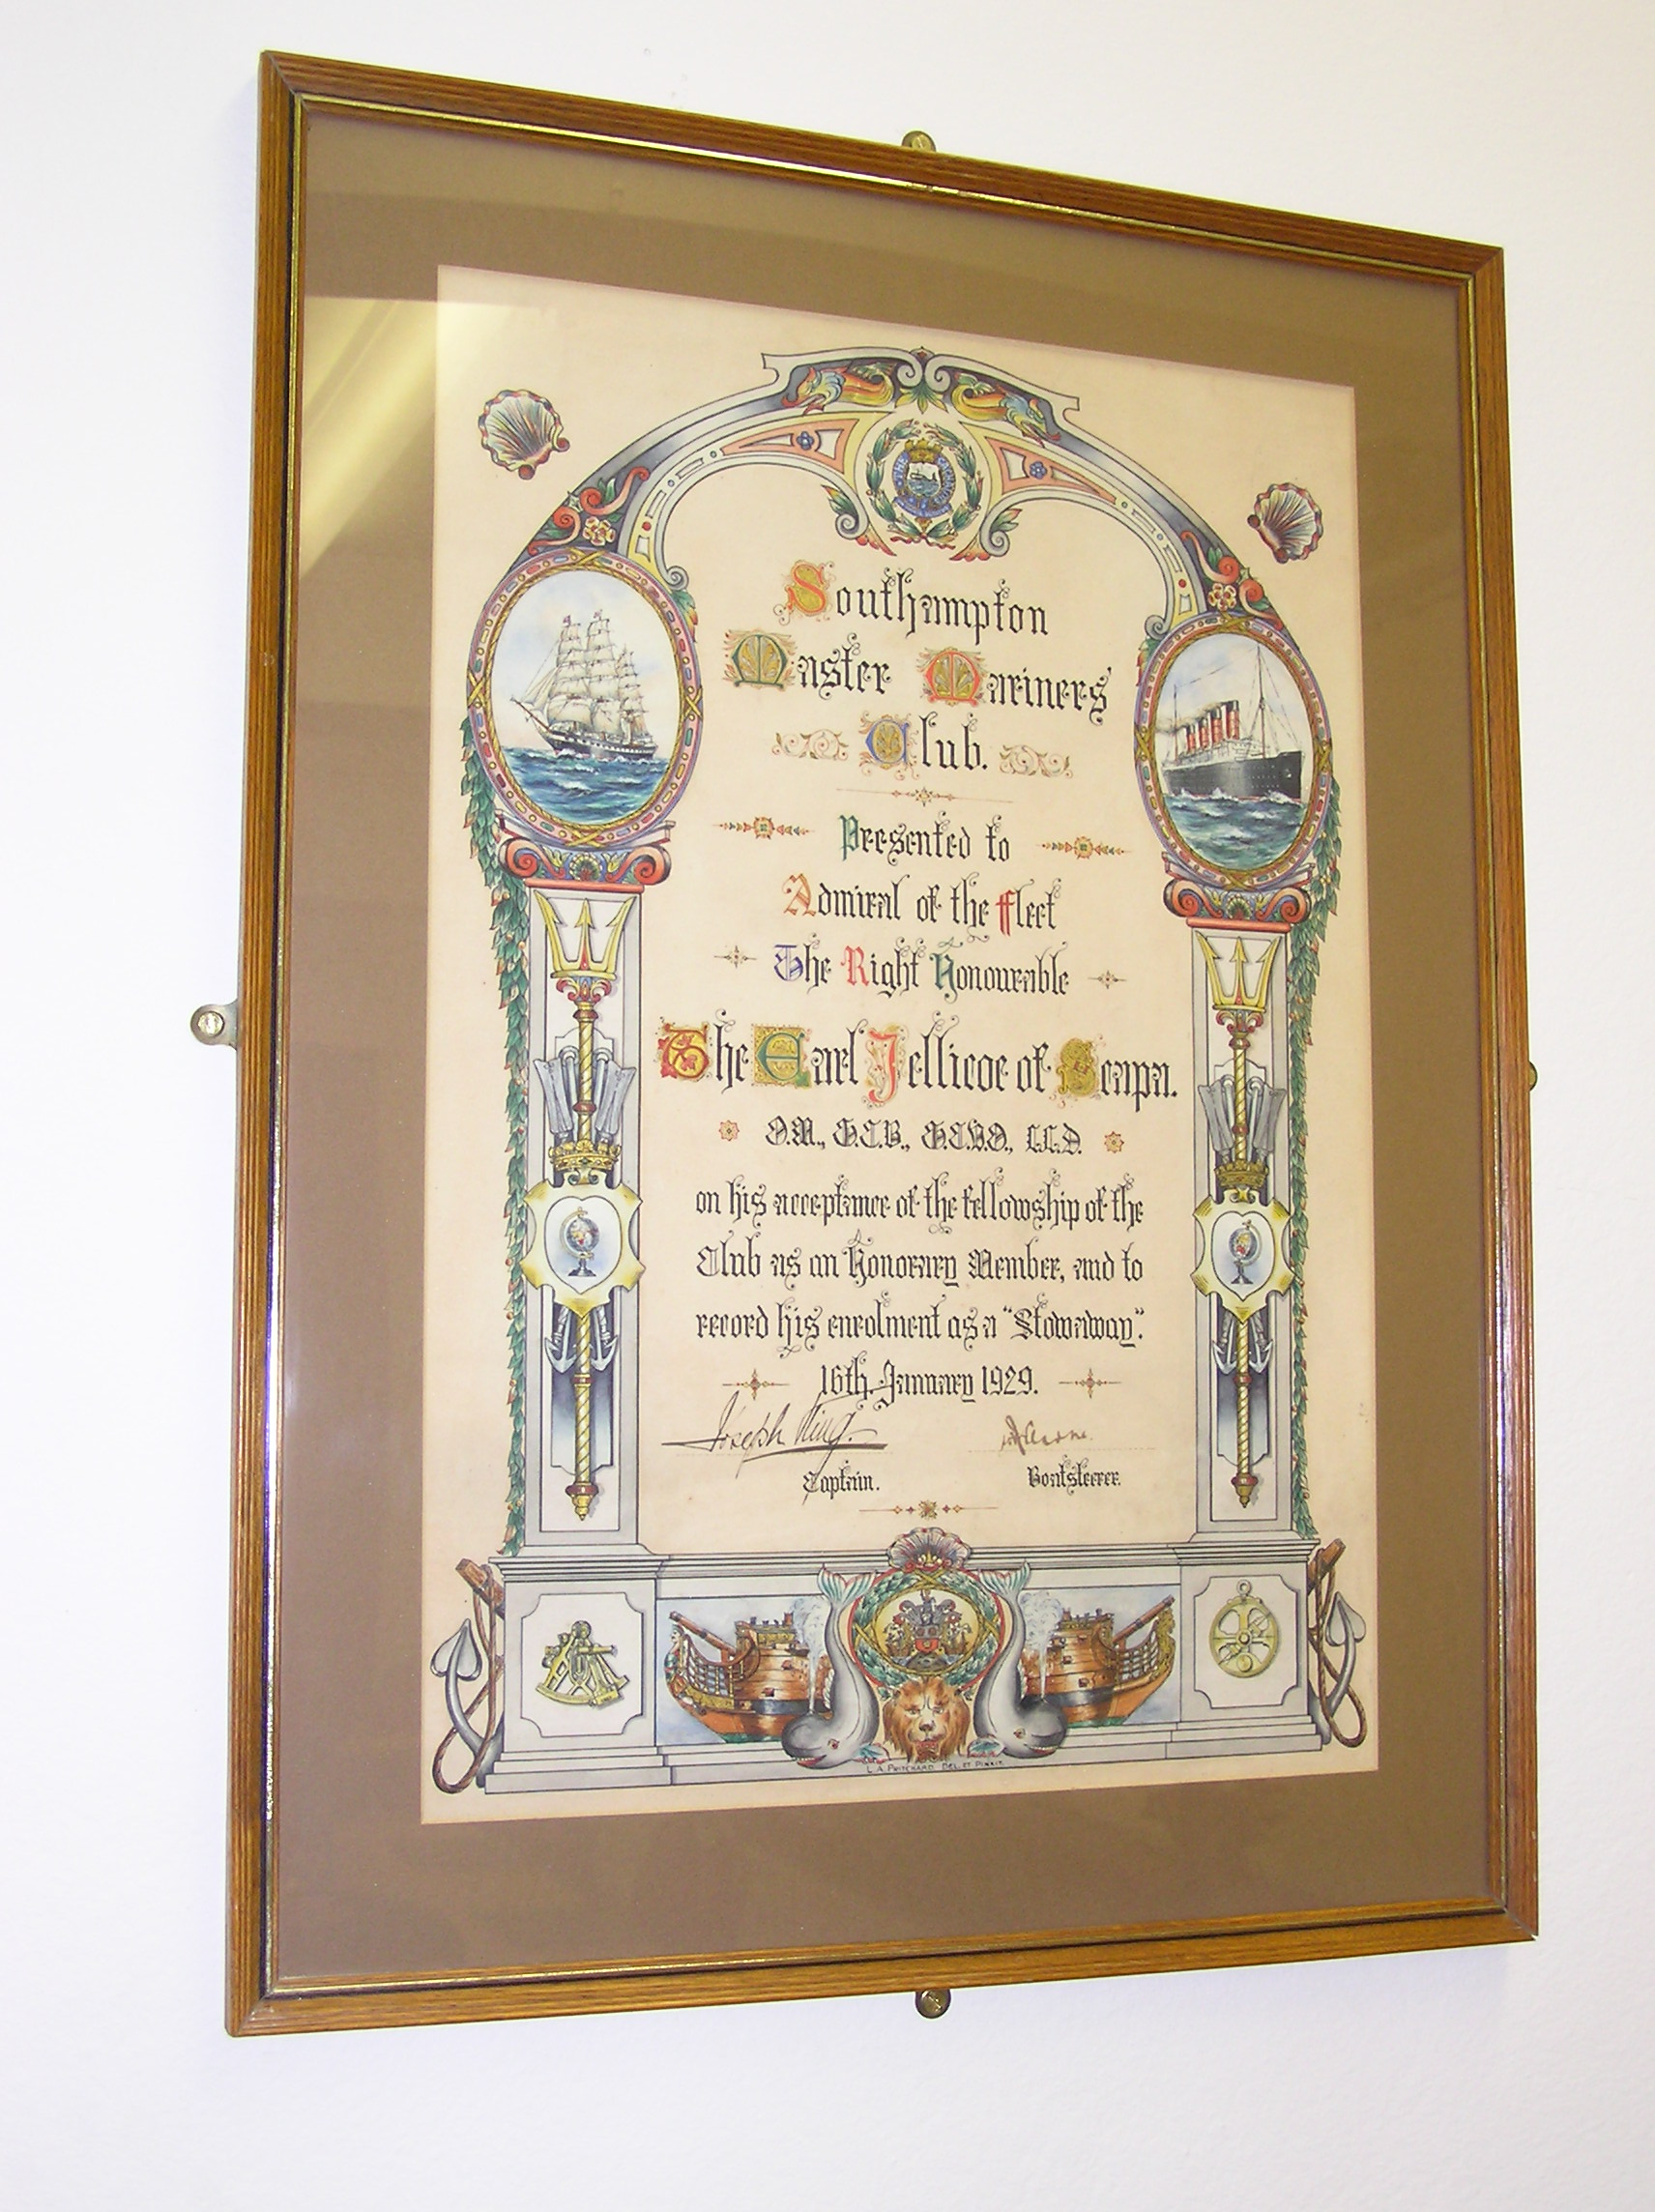 Southampton
Master Mariners
Club.
Presented to
Admiral of the Fleet
The Right Honourable
The Earl Jellicoe of Scapa.
O.M., G.C.B., G.C.V.O., LL.D.
on his acceptance of the fellowship of the
Club as an Honorary Member, and to
record his enrolment as a "Stowaway".
16th. January 1929.
Joseph King.
Captain.
Boatsteerer.
L. A. PRITCHARD. DEL. ET PINXIT.